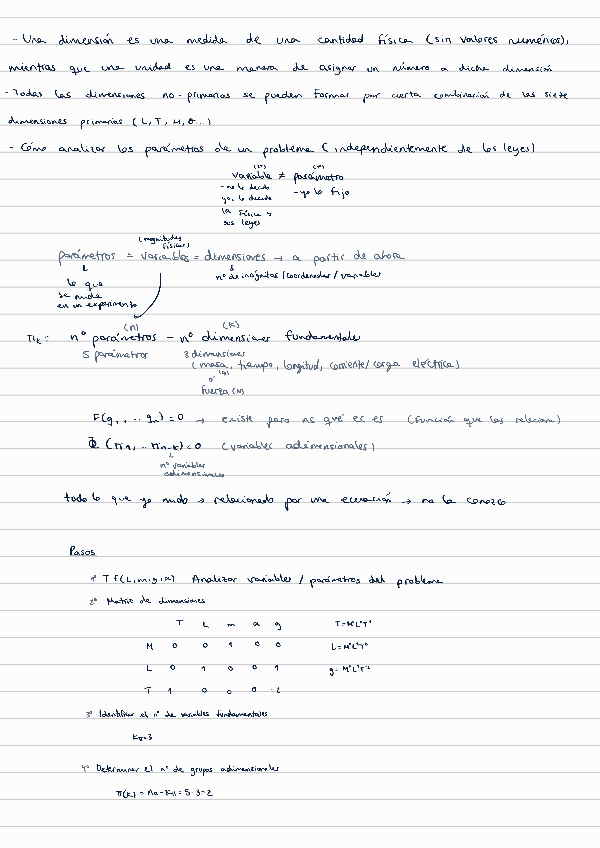 - Una dimensión es una medida de una cantidad física (sin valores numéricos),
mientras que una unidad es una manera de asignar un número a dicha dimensión
- Todas las dimensiones no-primarias se pueden formar por cierta combinación de las siete
dimensiones primarias (L, T, M, θ...)
- Cómo analizar los parámetros de un problema (independientemente de las leyes)
variable ≠ parámetro
- no lo decido
yo, lo decide
la física y
sus leyes
- yo lo fijo
(magnitudes
físicas)
parámetros = variables = dimensiones → a partir de ahora
lo que
se mide
en un experimento
nº de incógnitas/coordenadas/variables
(n) (k)
nº parámetros - nº dimensiones fundamentales
5 parámetros 3 dimensiones
(masa, tiempo, longitud, corriente/carga eléctrica)
fuerza (N)
F(q1, ... qn) = 0 → existe pero no qué es es (función que las relaciona)
Φ (π1, ... πn-k) = 0 (variables adimensionales)
nº variables
adimensionales
todo lo que yo mido → relacionado por una ecuación → no la conozco
Pasos
1º T f(L, m, g, α) Analizar variables / parámetros del problema
2º Matriz de dimensiones
T L m α g T = M⁰L⁰T¹
M 0 0 1 0 0 L = M⁰L¹T⁰
L 0 1 0 0 1 g = M⁰L¹T⁻²
T 1 0 0 0 -2
3º Identificar el nº de variables fundamentales
4º Determinar el nº de grupos adimensionales